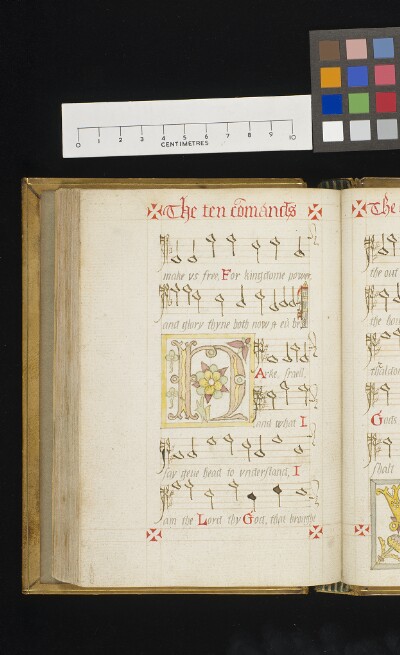 0 1 2 3 4 5 6 7 8 9 10
CENTIMETRES
The ten cōmandts
make vs free, For kingdome power,
and glory thyne both now &
HArke, Israell,
and what I
say geue heed to vnderstand, I
am the Lord thy God, that brought
The
the out
the hou
Gods
shalt